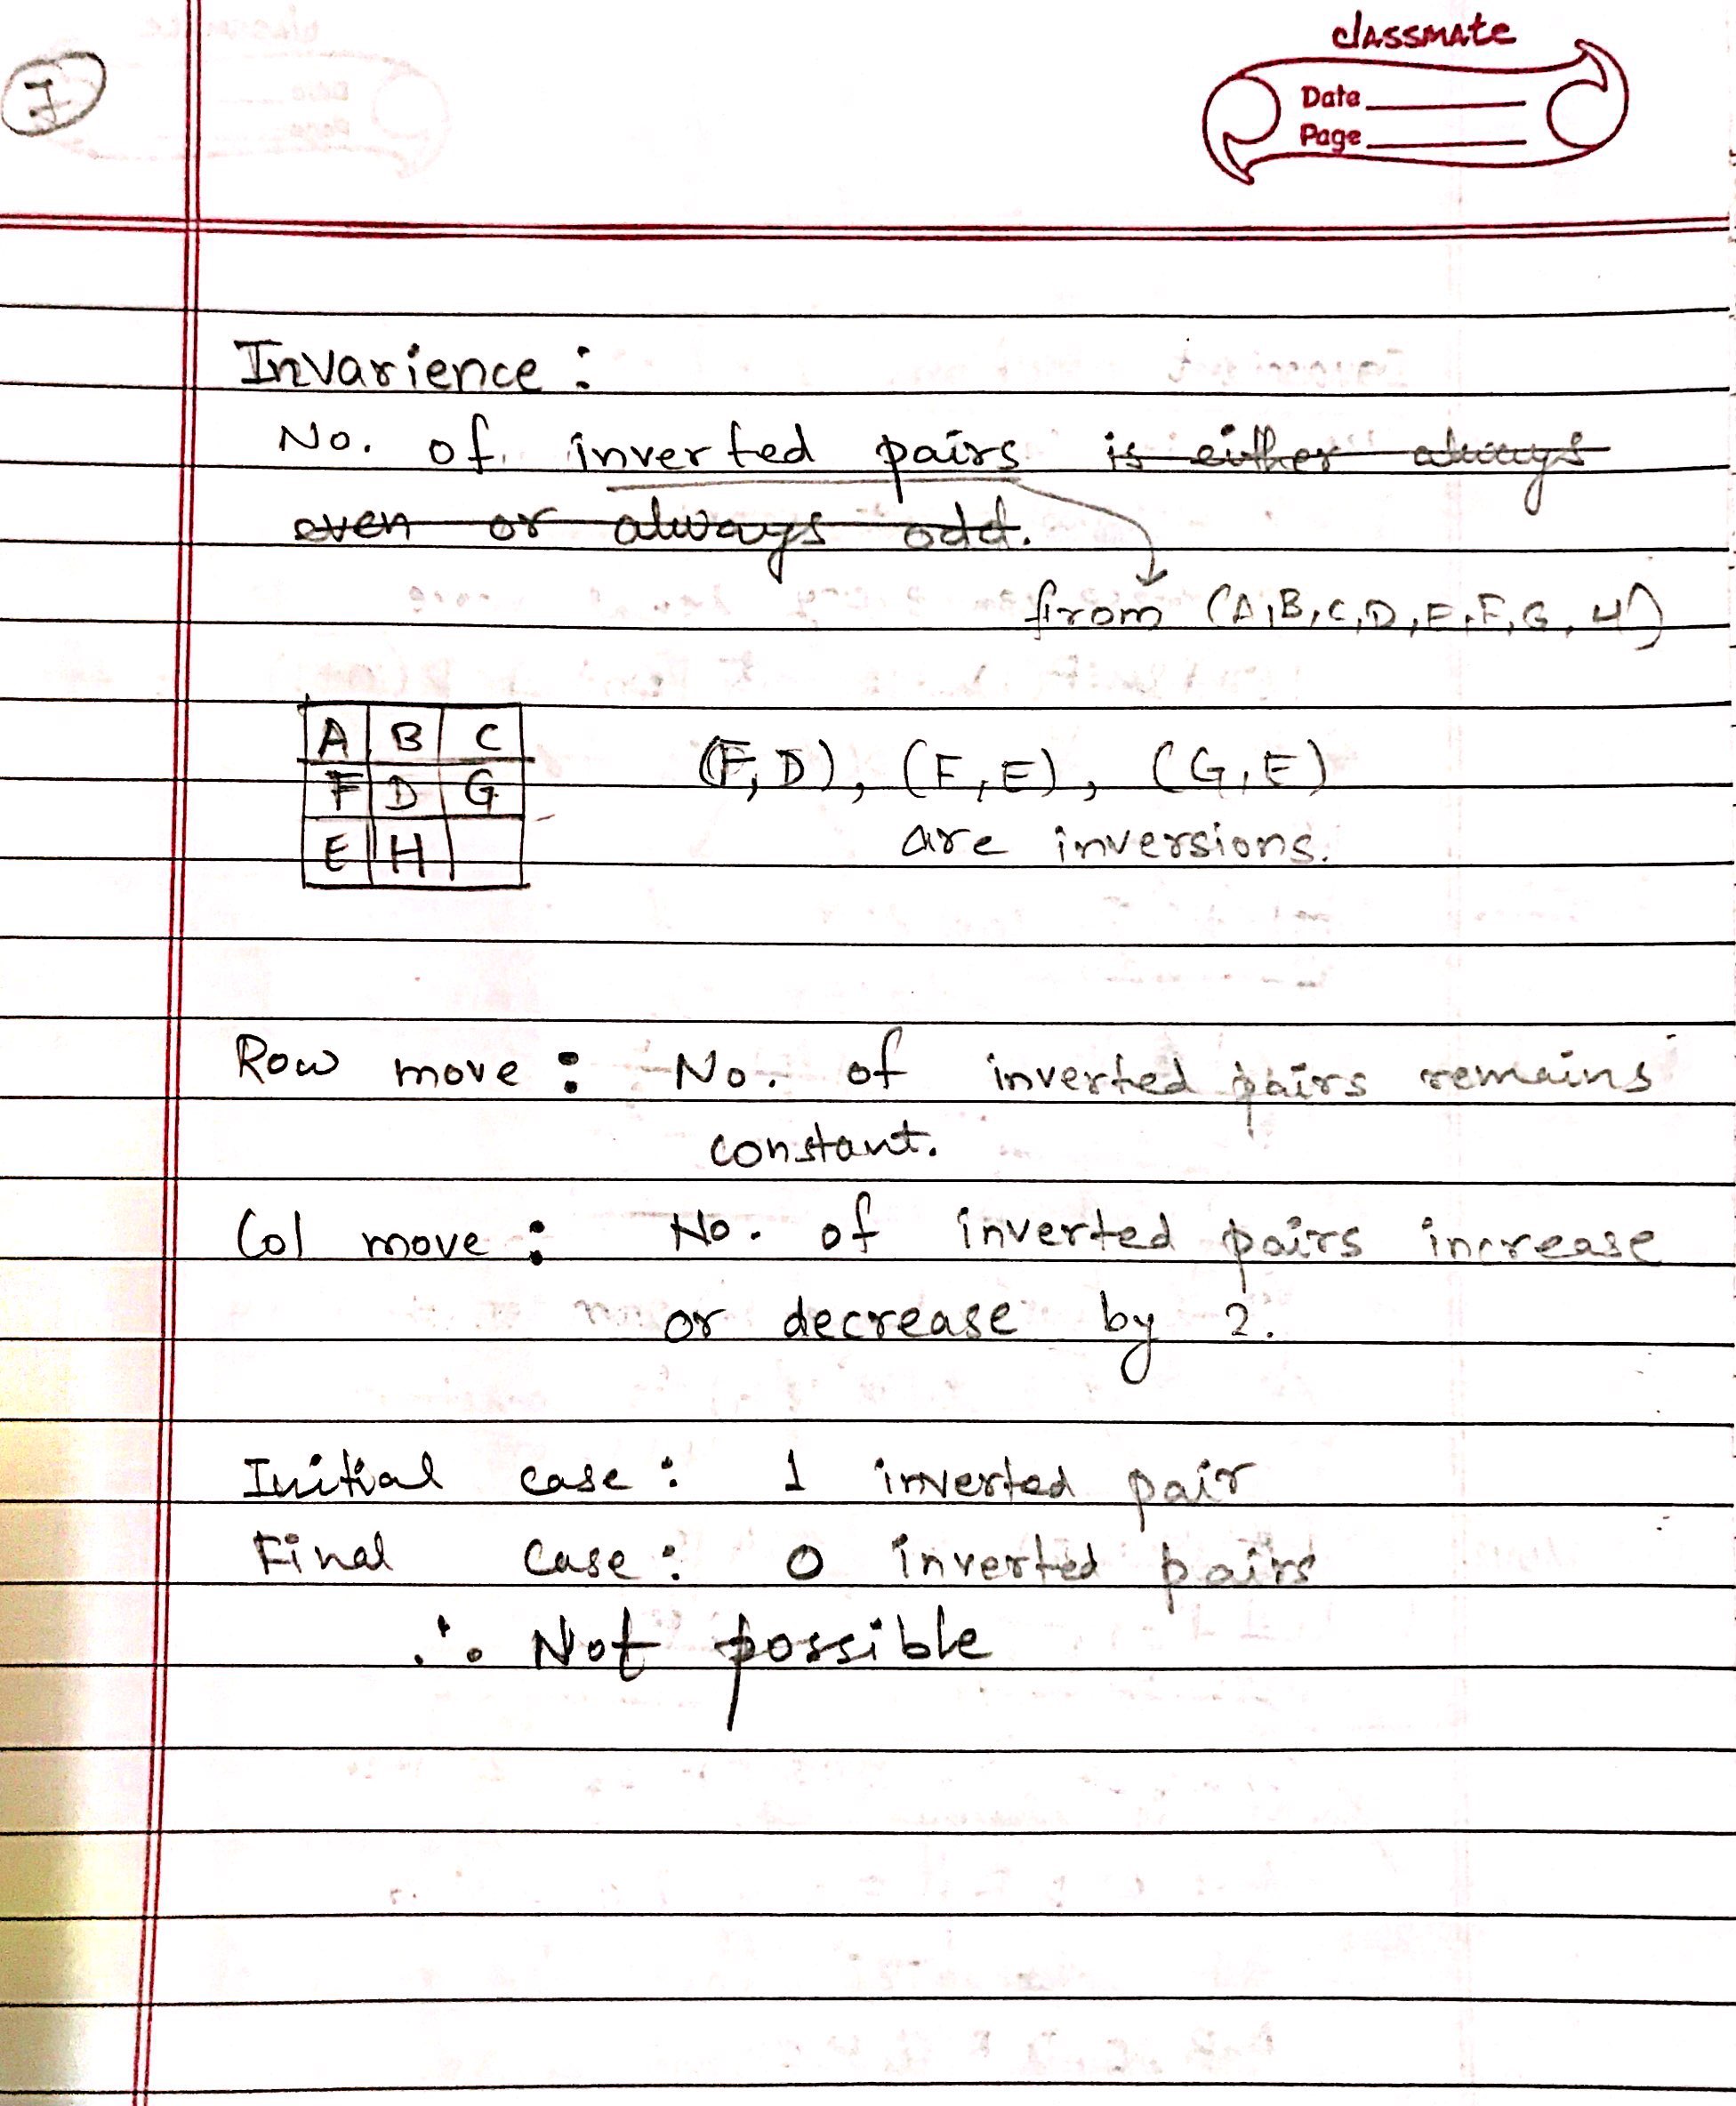 7
classmate
Date
Page
Invarience :
No. of inverted pairs is either always
even or always odd.
from (A,B,C,D,E,F,G,H)
A B C
F D G
E H
(F,D), (F,E), (G,E)
are inversions.
Row move : No. of inverted pairs remains
constant.
Col move : No. of inverted pairs increase
or decrease by 2.
Initial case : 1 inverted pair
Final case : 0 inverted pairs
∴ Not possible